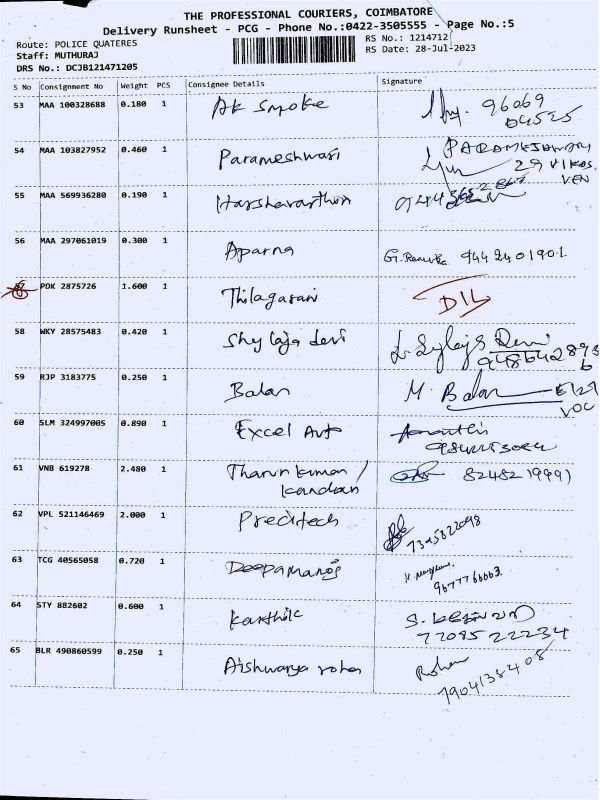 THE PROFESSIONAL COURIERS, COIMBATORE
Delivery Runsheet - PCG - Phone No.:0422-3505555 - Page No.:5
Route: POLICE QUATERES
Staff: MUTHURAJ
DRS No.: DCJB121471205
RS No.: 1214712
RS Date: 28-Jul-2023
S No Consignment No Weight PCS Consignee Details Signature
53 MAA 100328688 0.180 1 AK Smoke 96069
04525
54 MAA 103827952 0.460 1 Parameshwari PARAMESWARAN
29 VIKAS
VEN
55 MAA 569936280 0.190 1 Harshavardhan
56 MAA 297061019 0.300 1 Aparna G. Renuka 9442401901
PDK 2875726 1.600 1 Thilagarani D1L
58 WKY 28575483 0.420 1 Shylaja devi Devi
948642893
6
59 RJP 3183775 0.250 1 Balan M. Balan E/29
VOC
60 SLM 324997005 0.890 1 Excel Auto
61 VNB 619278 2.480 1 Tharun kumar / 8248219991
kandan
62 VPL 521146469 2.000 1 Precitech 7395822098
63 TCG 40565058 0.720 1 Deepamanoj 9677766663.
64 STY 882602 0.600 1 Karthik
77085 22234
65 BLR 490860599 0.250 1 Aishwarya rohan Rohan
7904138408